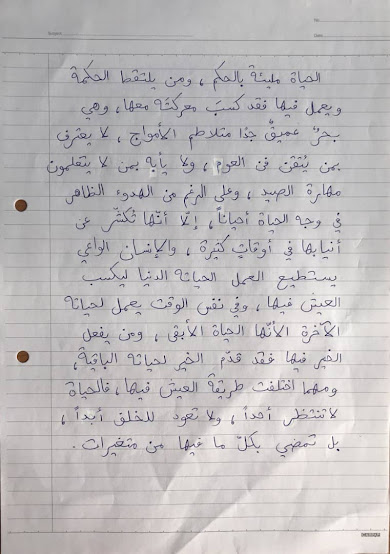 الحياة مليئة بالحكم ، ومن يلتقط الحكمة
ويعمل فيها فقد كسبَ معركته معها، وهي
بحرٌ عميقٌ جدًا متلاطم الأمواج ، لا يعترف
بمن يُتقن فن العوم ، ولا يأبه بمن لا يتعلمون
مهارة الصيد ، وعلى الرغم من الهدوء الظاهر
في وجه الحياة أحياناً ، إلّا أنّها تُكشّر عن
أنيابها في أوقاتٍ كثيرة ، والإنسان الواعي
يستطيع العمل لحياته الدنيا ليكسب
العيش فيها ، وفي نفس الوقت يعمل لحياته
الآخرة لأنّها الحياة الأبقى ، ومن يفعل
الخير فيها فقد قدّم الخير لحياته الباقية،
ومهما اختلفت طريقة العيش فيها، فالحياة
لا تنتظر أحداً ، ولا تعود للخلف أبداً ،
بل تمضي بكلّ ما فيها من متغيرات .